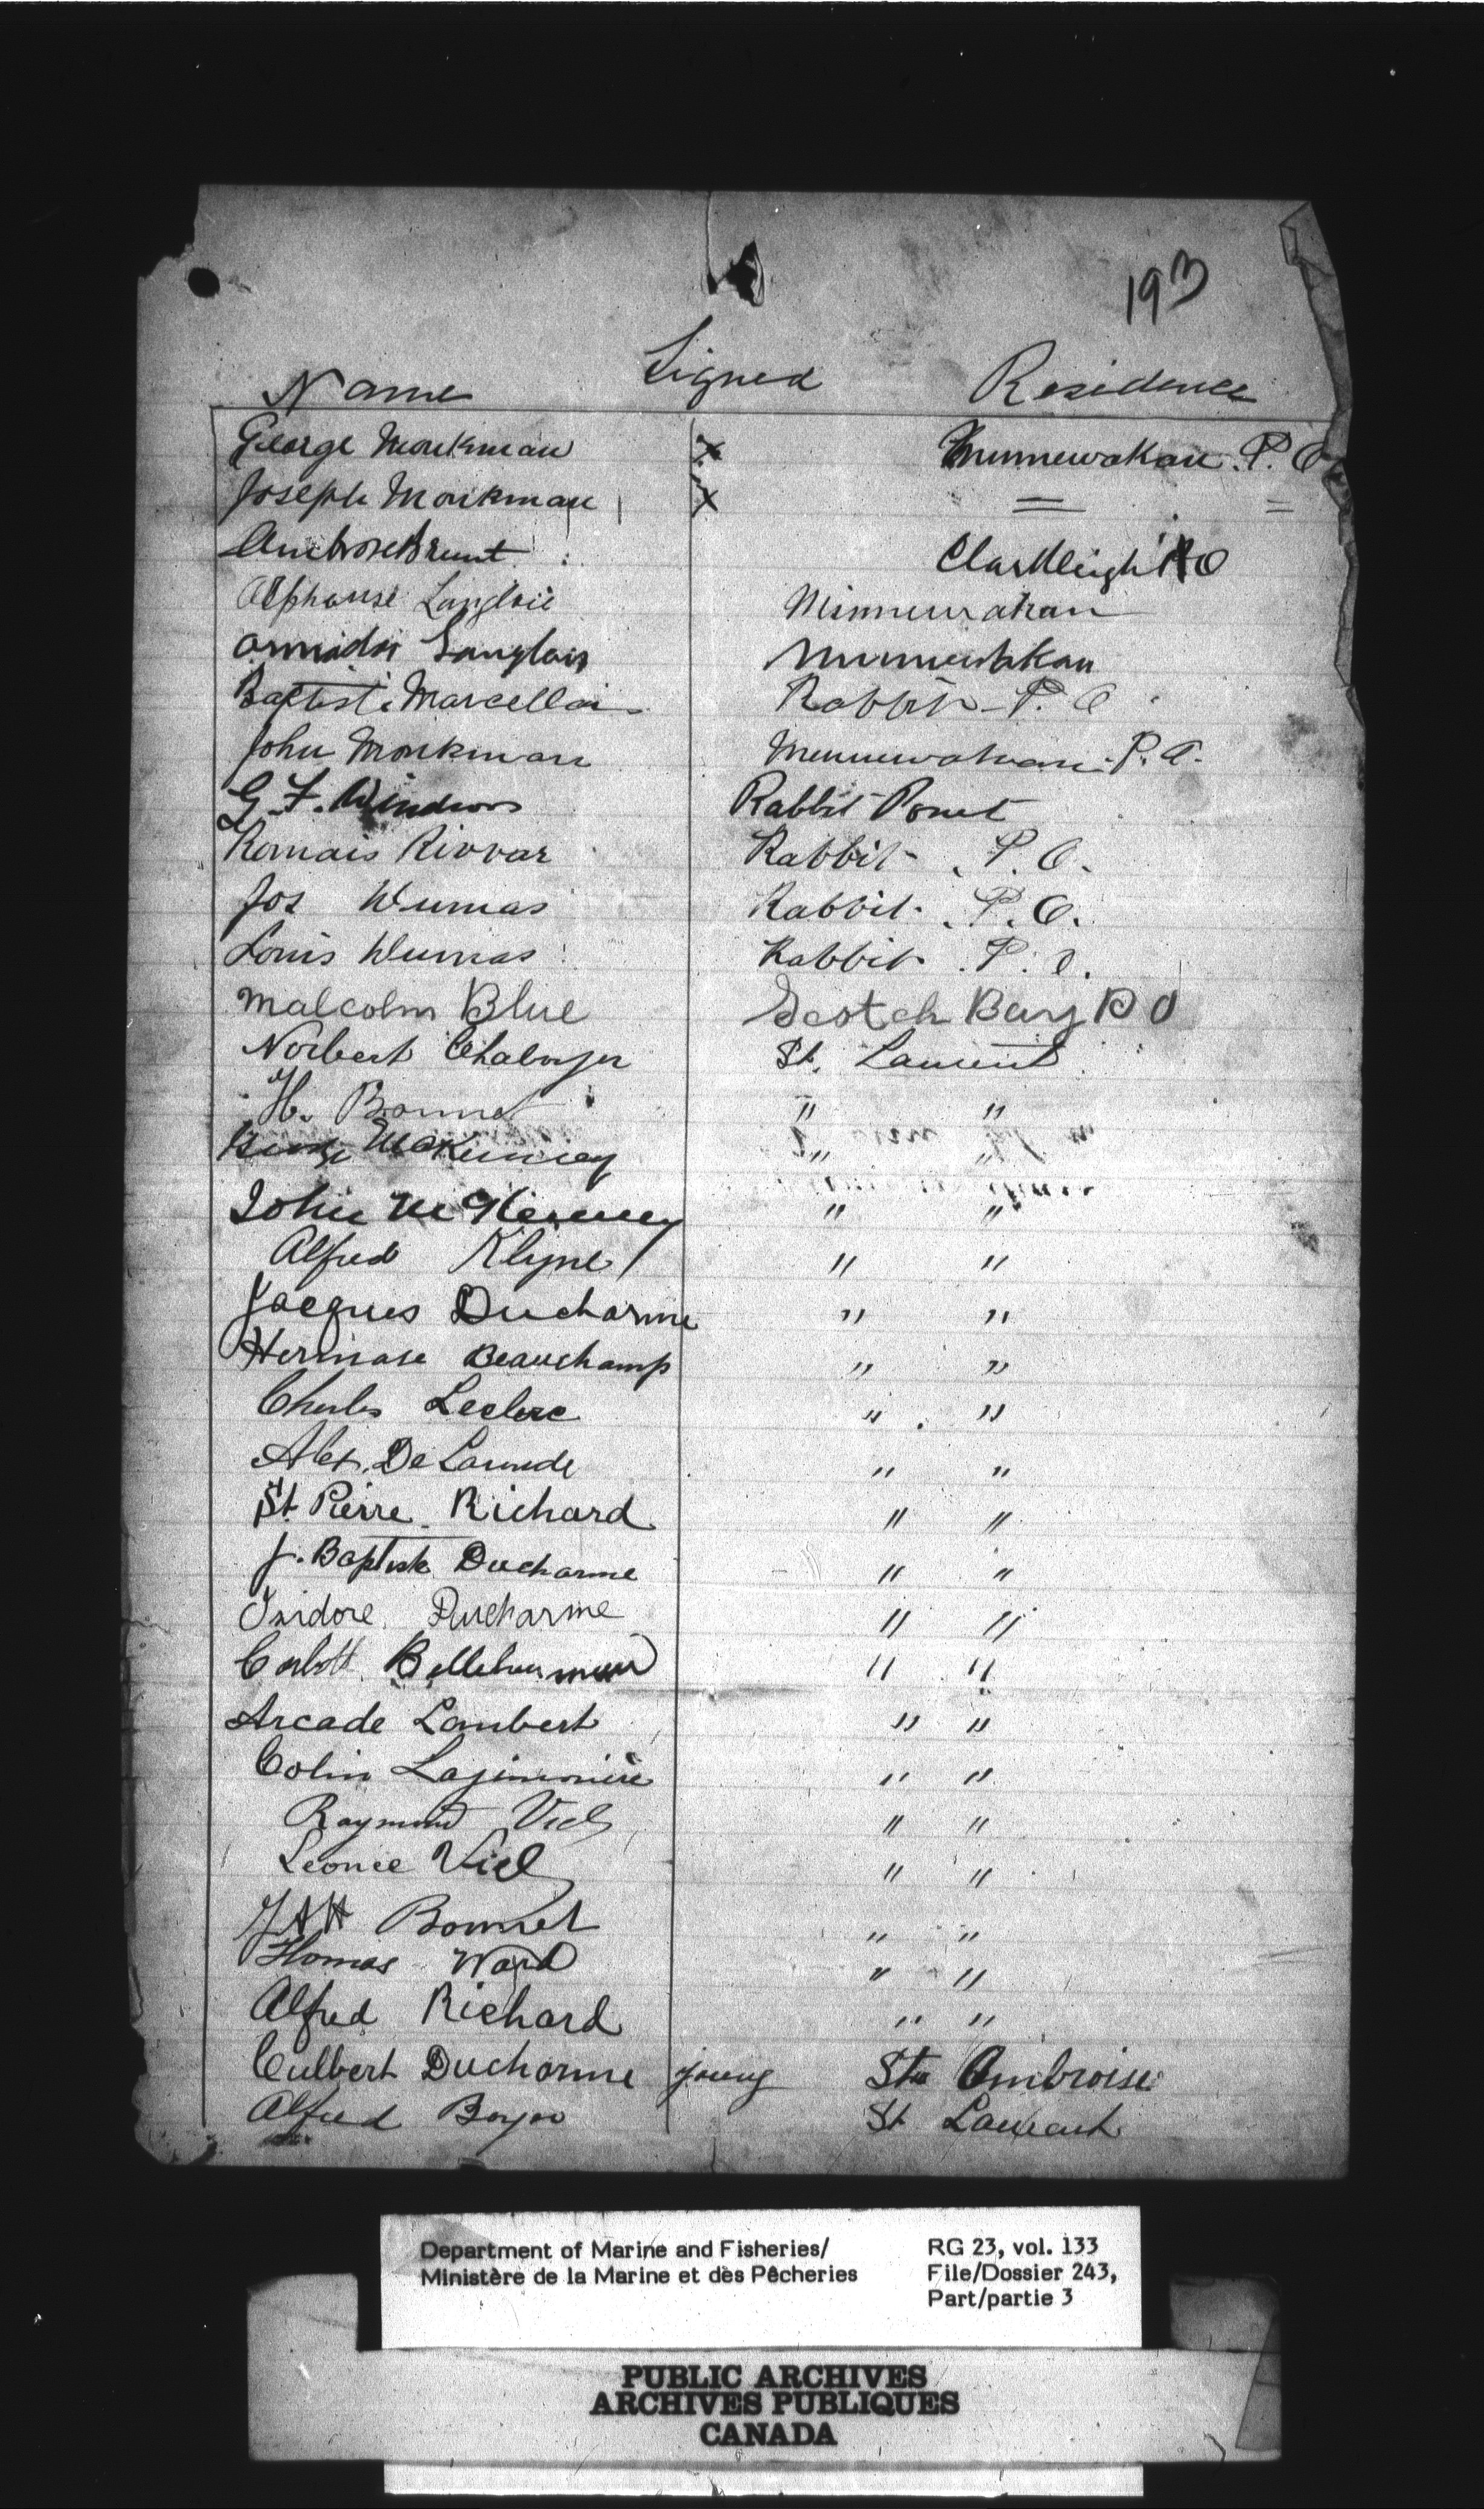 193
Name Signed Residence
George Monkman x Minnewakan P.O
Joseph Monkman x = =
Ambrose Brunt Clarkleigh P O
Alphonse Langlois Minnewakan
Langlois Minnewakan
Baptiste Marcellais Rabbit P. O
John Monkman Minnewakan P.O.
G. F. Rabbit Point
Romais Rivvar Rabbit P. O.
Jos Dumas Rabbit P. O.
Louis Dumas Rabbit P. O.
Malcolm Blue Scotch Bay P O
Norbert St. Laurent
H. Bonnet " "
McKinney " "
John McKinney " "
Alfred Klyne " "
Jacques Ducharme " "
Hermase Beauchamp " "
Charles Leclerc " "
Alex. DeLaronde " "
St. Pierre Richard " "
J. Baptiste Ducharme " "
Isidore Ducharme " "
" "
Arcade Lambert " "
Colin Lajimonière " "
Raymond Viel " "
Leonce Viel " "
Bonnet " "
Thomas Ward " "
Alfred Richard " "
Culbert Ducharme young Ste Ambroise
Alfred Boyer St Laurent
Department of Marine and Fisheries/ RG 23, vol. 133
Ministère de la Marine et des Pêcheries File/Dossier 243,
Part/partie 3
PUBLIC ARCHIVES
ARCHIVES PUBLIQUES
CANADA